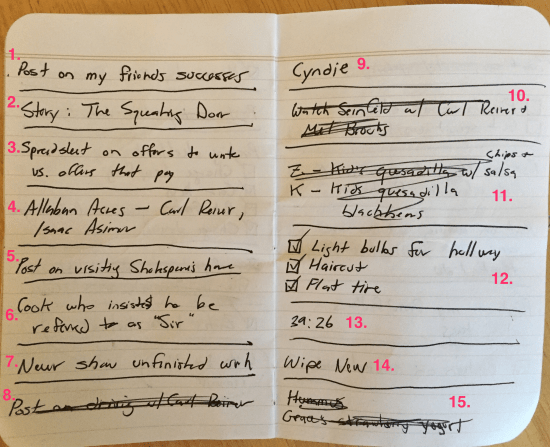 1. Post on my friends successes
2. Story: The Squeaking Door
3. Spreadsheet on offers to write
vs. offers that pay
4. Allaban Acres — Carl Reiner,
Isaac Asimov
5. Post on visiting Shakespeare's home
6. Cook who insisted he be
referred to as "Sir"
7. Never show unfinished work
8. Post on driving w/ Carl Reiner
Cyndie 9.
10.
Watch Seinfeld w/ Carl Reiner &
Mel Brooks
Chips &
E - Kid's quesadilla w/ salsa
K - Kids quesadilla
11.
blackbeans
Light bulbs for hallway
Haircut
12.
Flat tire
39:26 13.
Wipe New 14.
Hummus
15.
strawberry yogurt